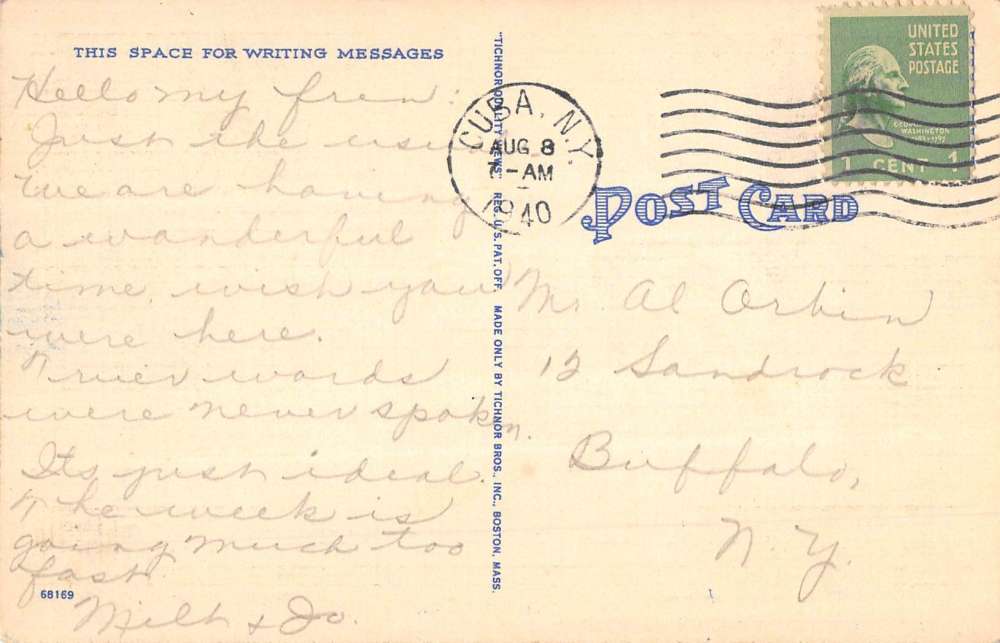 THIS SPACE FOR WRITING MESSAGES
Hello my fren:
Just the usual
We are having
a wonderful
time, wish you
were here.
Truer words
were never spoken.
Its just ideal.
The week is
going much too
fast.
Milt & Jo.
68169
"TICHNOR QUALITY VIEWS" REG. U.S. PAT. OFF. MADE ONLY BY TICHNOR BROS., INC., BOSTON, MASS.
CUBA, N.Y.
AUG 8
7-AM
1940
UNITED
STATES
POSTAGE
GEORGE
WASHINGTON
1789-1797
1 CENT 1
POST CARD
Mr. Al Orbin
12 Sandrock
Buffalo,
N.Y.